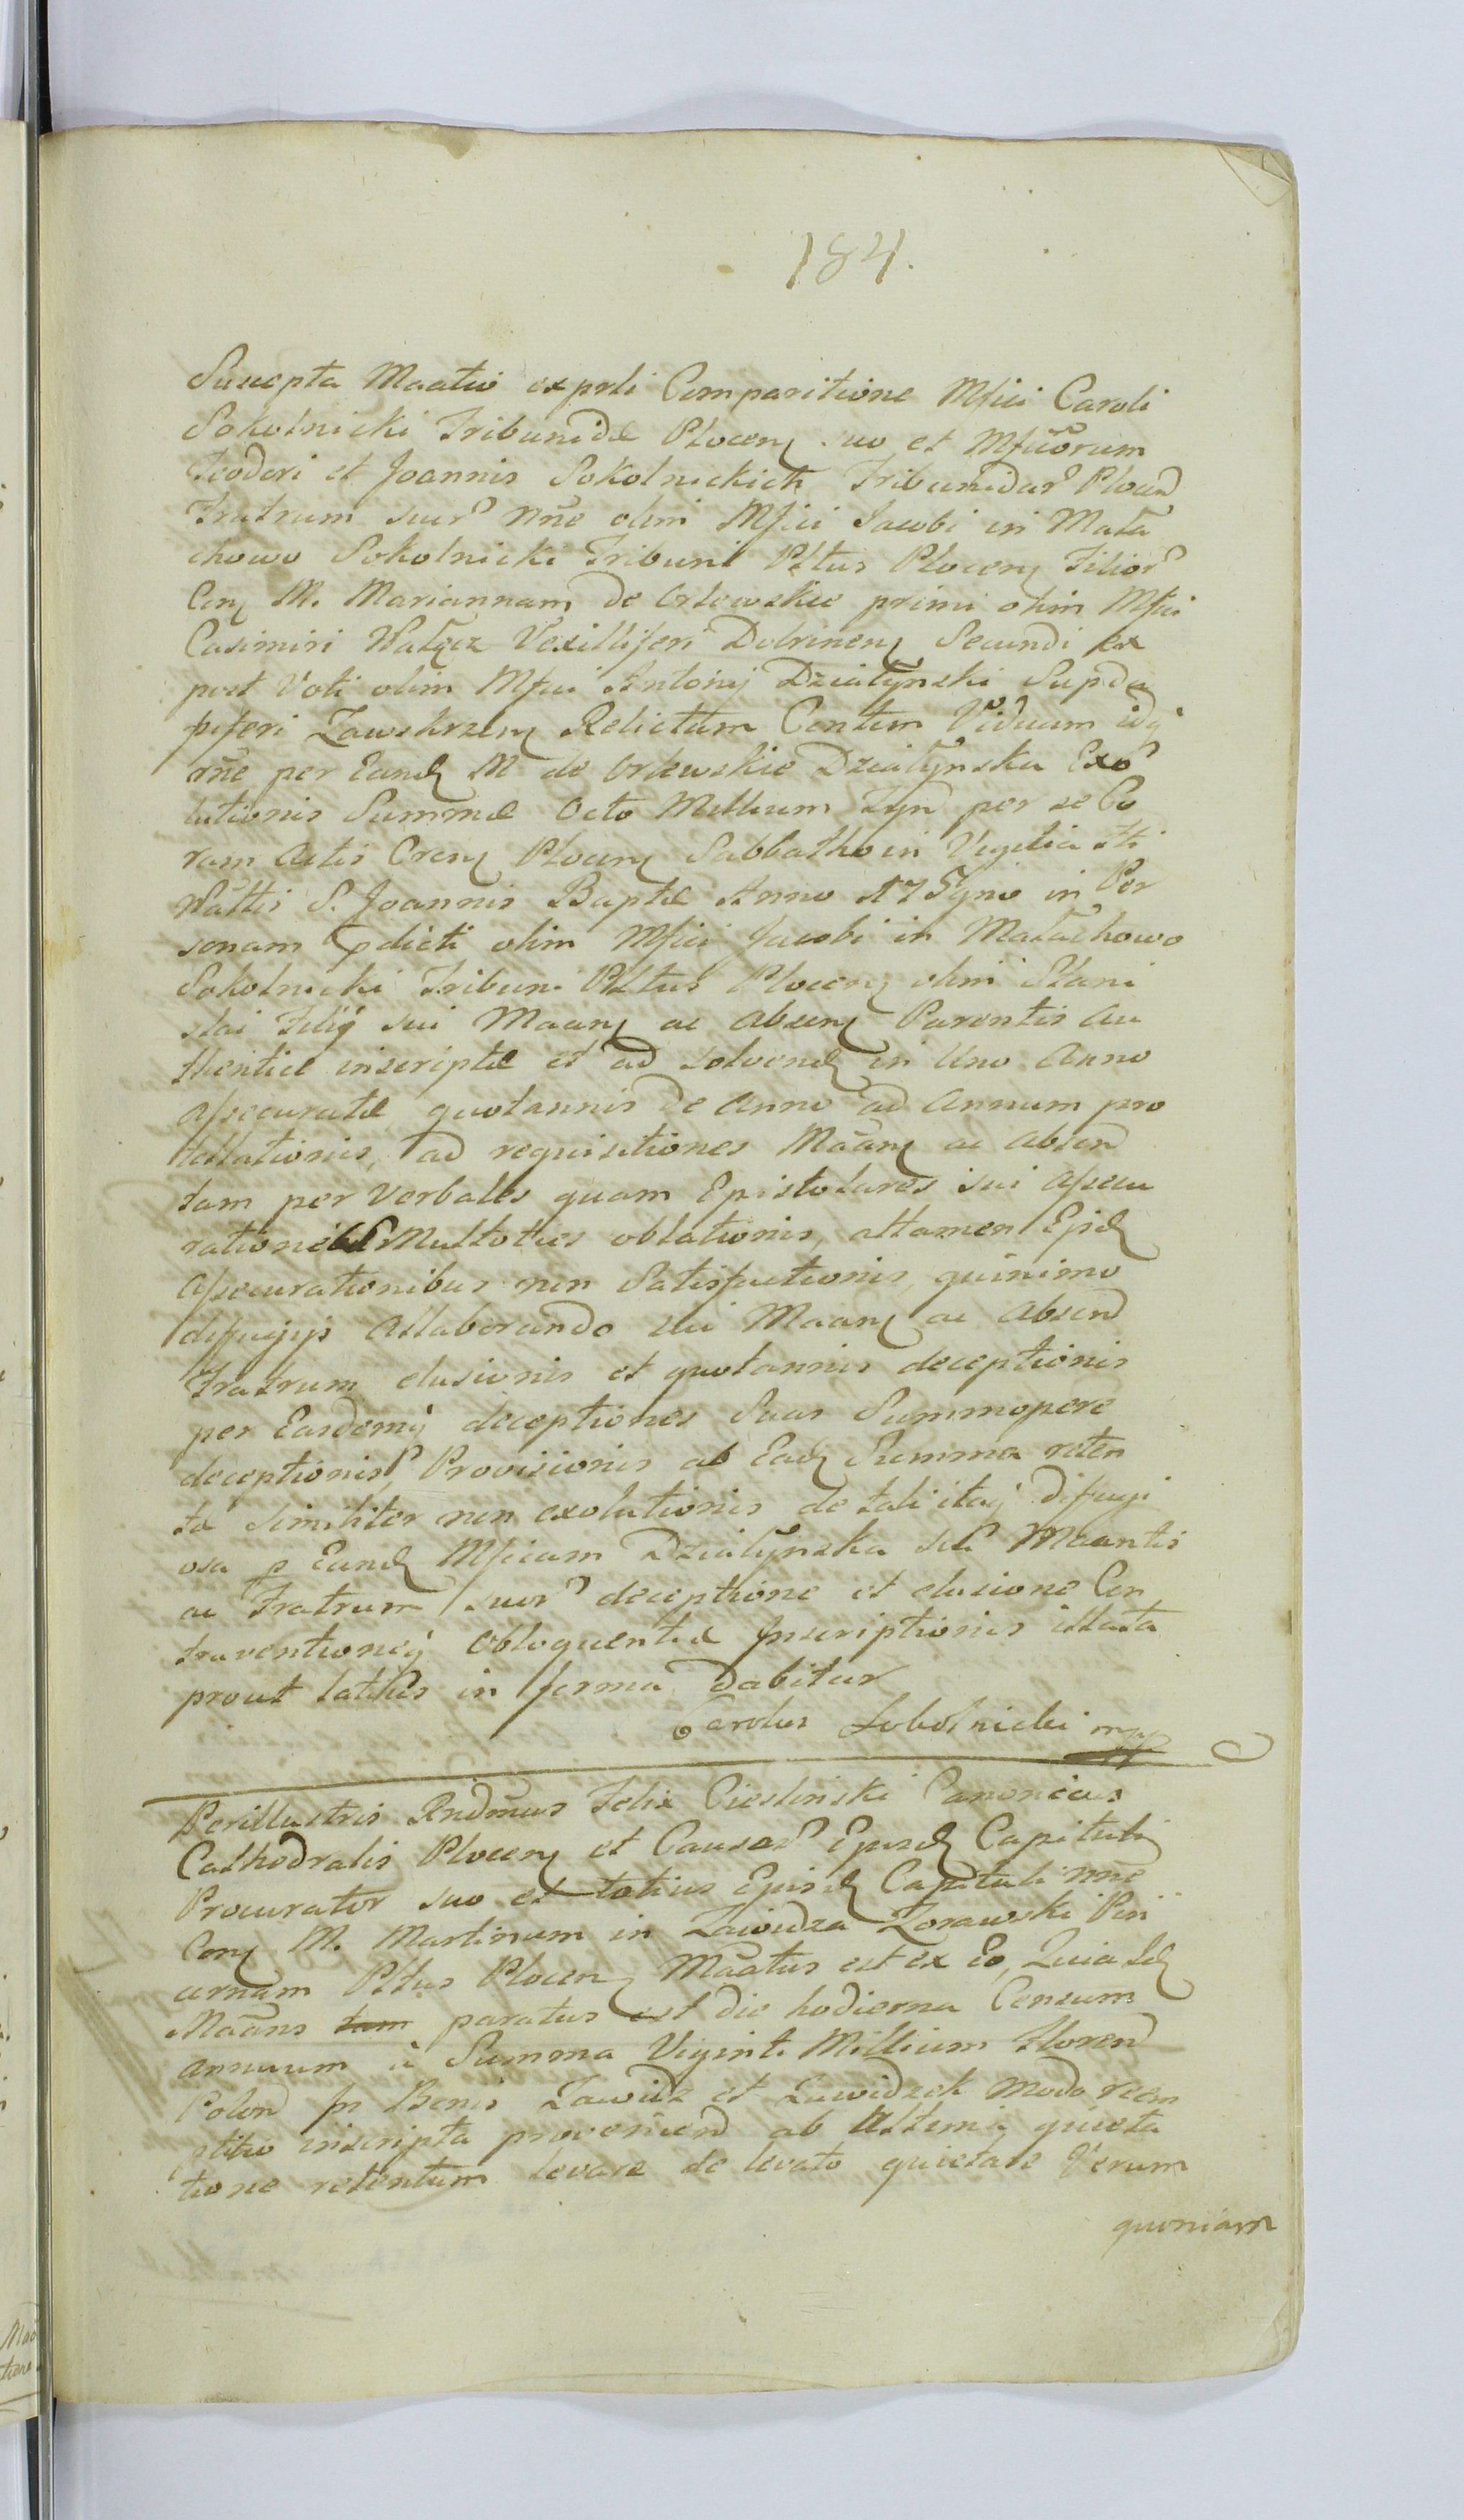 184.
Suscepta Maãtio ex prsti Comparitione Mfici Caroli
Sokolnicki Tribunidæ Plocen suo et Mficorum
Teodori et Joannis Sokolnickich Tribunidar Plocen
Fratrum suor nñe olim Mfici Jacobi in Mała
chowo Sokolnicki Tribuni Pltus Plocen Filior
Con M. Mariannam de Orłowskie primi olim Mfici
Casimiri Wałęcz Vexilliferi Dobrinen Secundi ex
post Voti olim Mfici Antonij Działynski Supda
piferi Zawskrzen Relictam Contum Viduam idq
rñe per Eand M de Orłowskie Działynska Exo
lutionis Summæ Octo Millium Tyn per se Co
ram Actis Cren Plocen Sabbatho in Vigilia sti
Nattis S. Joannis Baptæ Anno 175gmo in Per
sonam pdicti olim Mfici Jacobi in Małachowo
Sokolnicki Tribuni Pltus Plocen olim Stani
slai Filij sui Maan ac Absen Parentis Au
thentice inscriptæ et ad solvend in Uno Anno
assecuratæ quotannis de Anno ad Annum pro
tellationis, ad requisitiones Maan ac Absen
tam per Verbales quam Epistolares sui assecu
rationes Multoties oblationis, attamen Ejsd
assecurationibus non Satisfactionis, quinimo
diffugijs Allaborando sui Maan ac Absen
Fratrum elusionis et quotannis deceptionis
per Easdemq deceptiones Suas Summopere
deceptionis, Provisionis ab Ead Summa reten
ta similiter non exolutionis de tali itaq diffugi
osa p Eand Mficam Działynska sui Maantis
ac Fratrum suor deceptione et elusione Con
traventioneq obloquentiæ Inscriptionis illata
prout latius in forma dabitur
Carolus Sokolnicki mpp
Perillustris Rndmus Felix Ciesliński Canonicus
Cathedralis Plocen et Causar Ejusd Capituli
Procurator suo et totius Ejusd Capituli nñe
Con M. Martinum in Zawidza Zorawski Pin
cernam Pltus Plocen Maãtus est ex Eo, Quia Id
Maãns tam paratus est die hodierna Censum
annuum à Summa Viginti Millium Floren
Polon in Bonis Zawidz et Zawidzek modo reem
ptitio inscripta provenien ab Ultima quieta
tione retentum levare de levato quietare Verum
quoniam